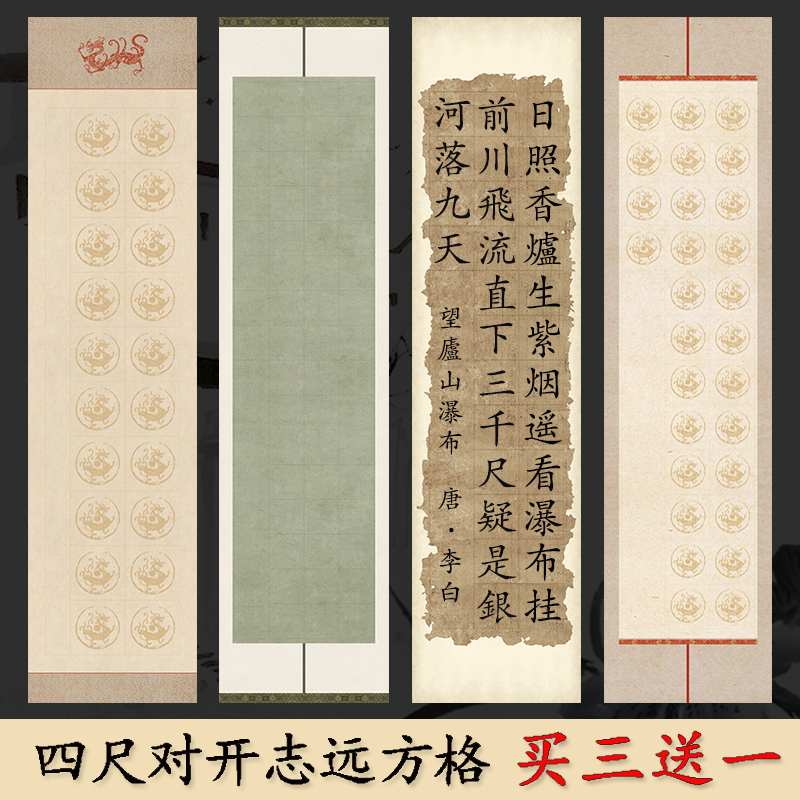 日照香爐生紫烟遥看瀑布挂
前川飛流直下三千尺疑是銀
河落九天
望廬山瀑布 唐·李白
四尺对开志远方格 买三送一